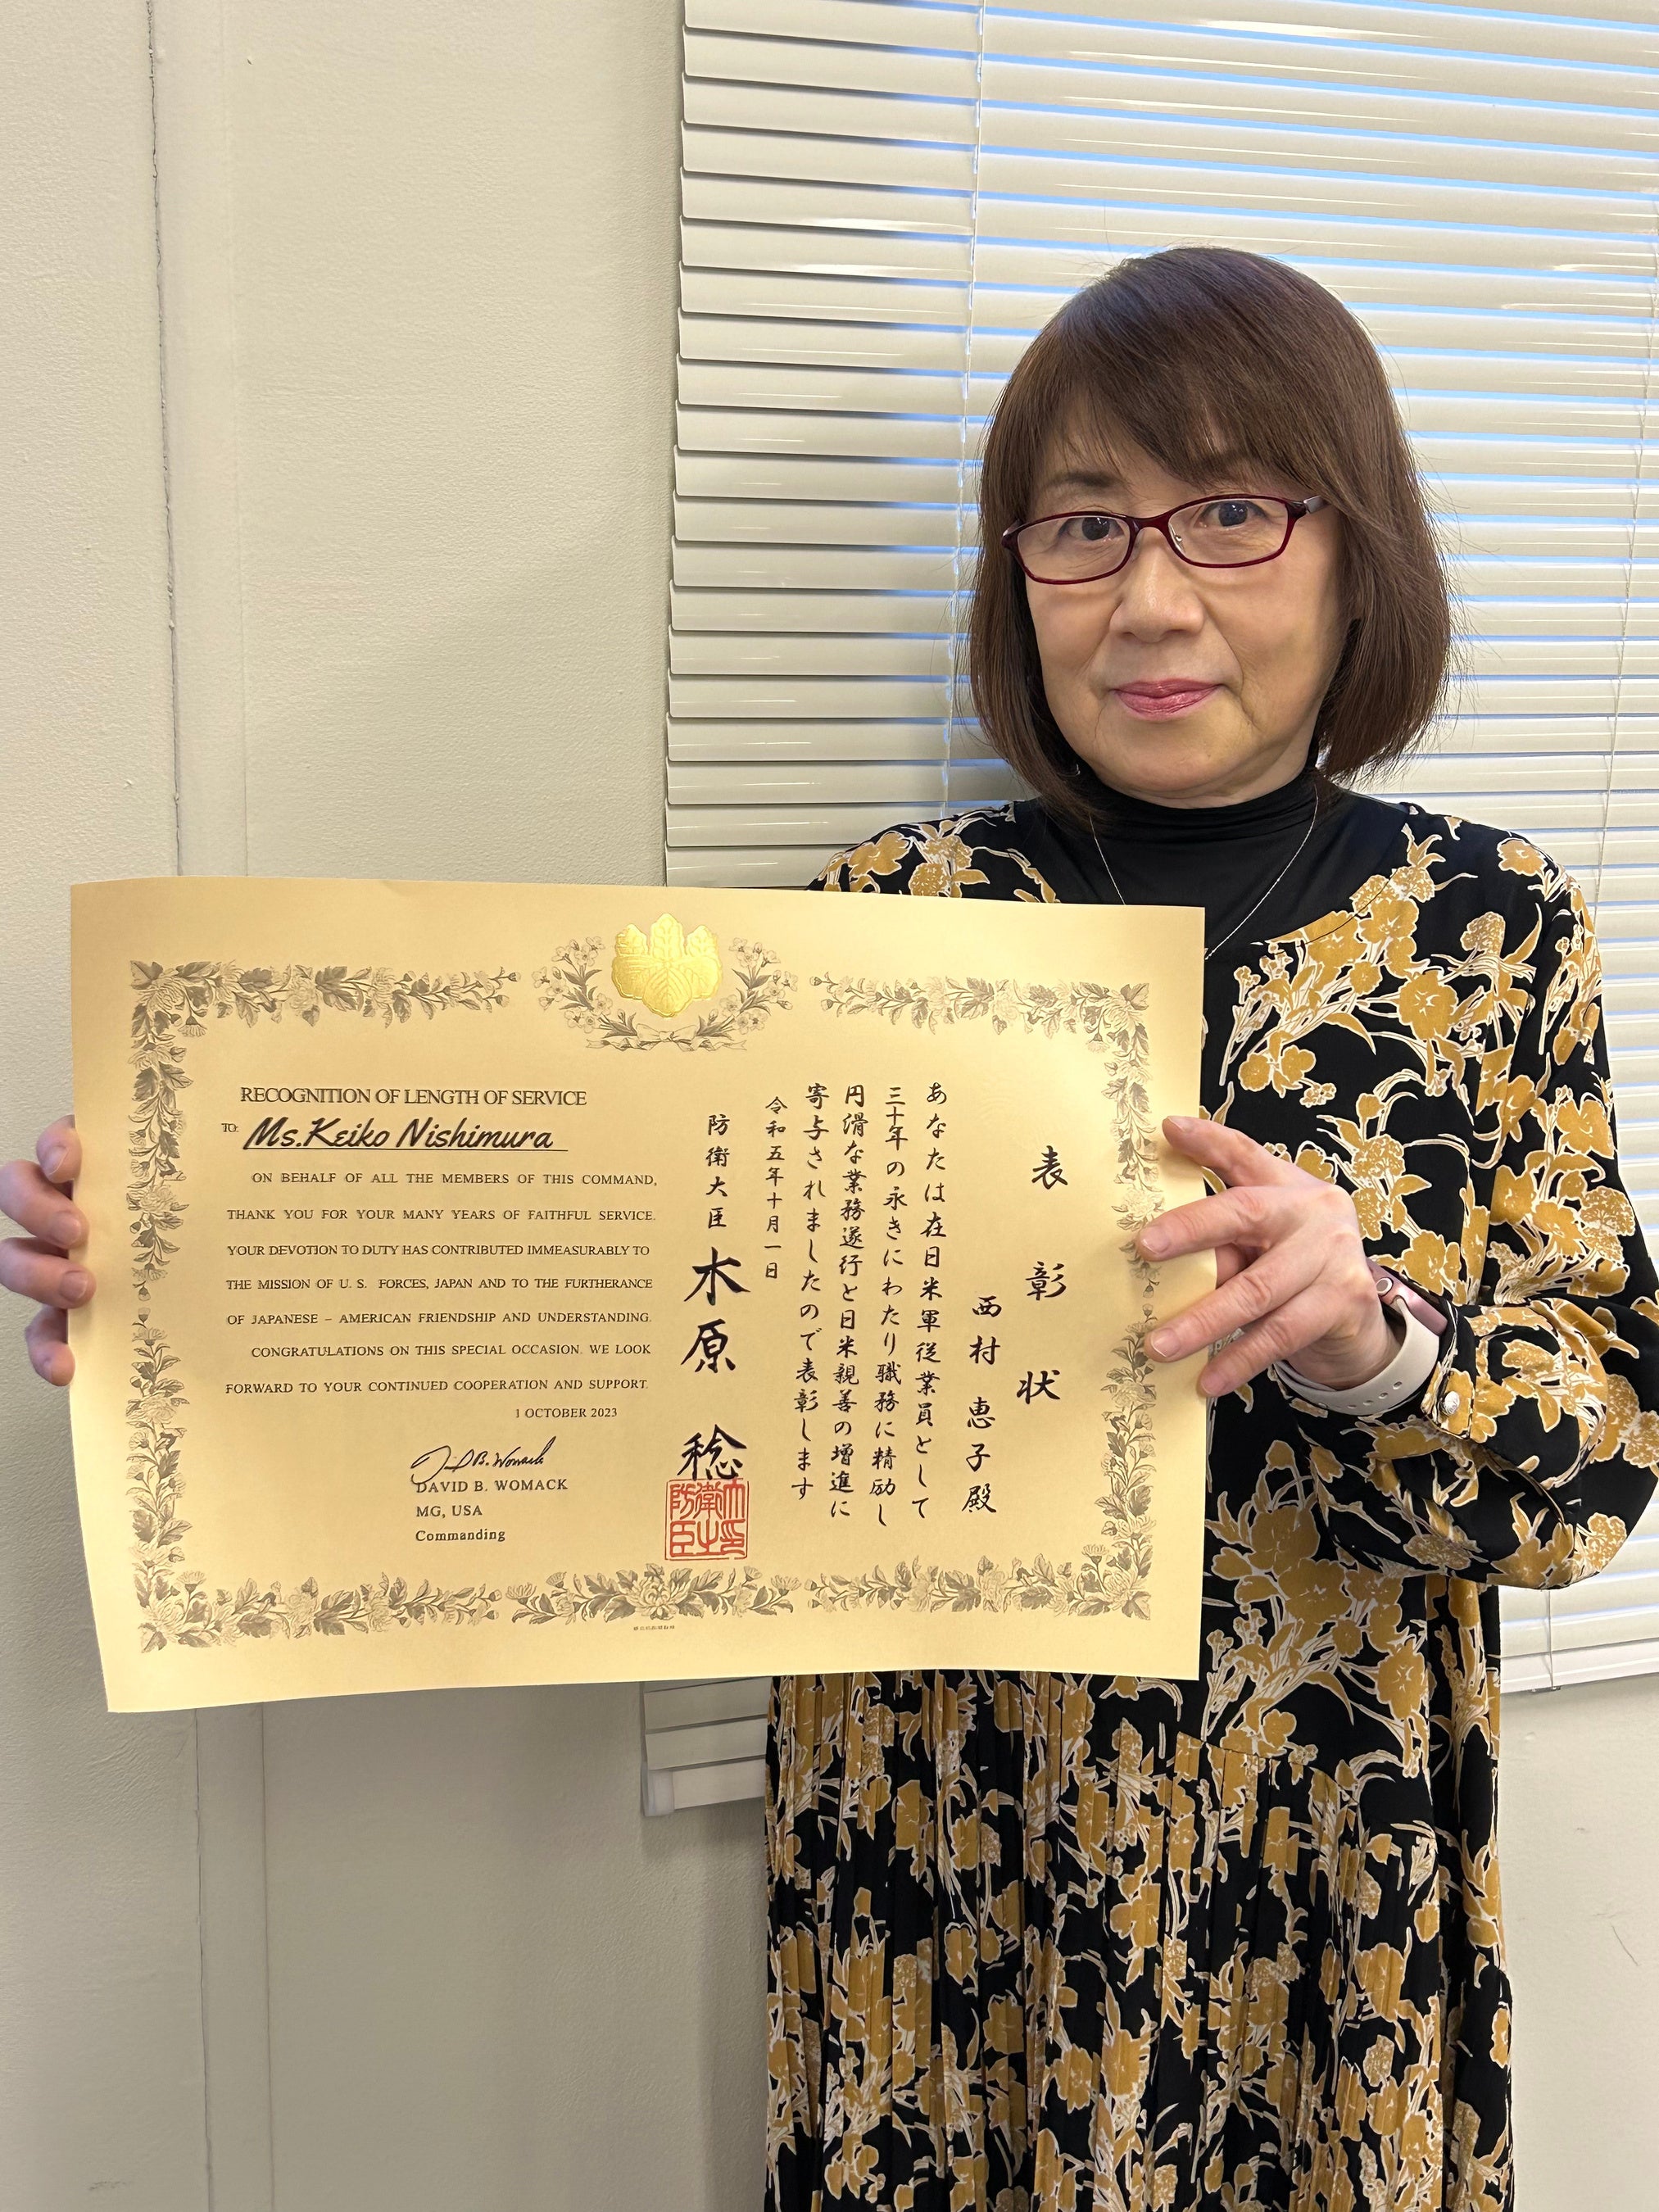 RECOGNITION OF LENGTH OF SERVICE
TO: Ms.Keiko Nishimura
ON BEHALF OF ALL THE MEMBERS OF THIS COMMAND,
THANK YOU FOR YOUR MANY YEARS OF FAITHFUL SERVICE.
YOUR DEVOTION TO DUTY HAS CONTRIBUTED IMMEASURABLY TO
THE MISSION OF U. S. FORCES, JAPAN AND TO THE FURTHERANCE
OF JAPANESE – AMERICAN FRIENDSHIP AND UNDERSTANDING.
CONGRATULATIONS ON THIS SPECIAL OCCASION. WE LOOK
FORWARD TO YOUR CONTINUED COOPERATION AND SUPPORT.
1 OCTOBER 2023
David B. Womack
DAVID B. WOMACK
MG, USA
Commanding
表彰状
西村 恵子 殿
あなたは在日米軍従業員として
三十年の永きにわたり職務に精励し
円滑な業務遂行と日米親善の増進に
寄与されましたので表彰します
令和五年十月一日
防衛大臣 木原 稔
防衛大臣之印